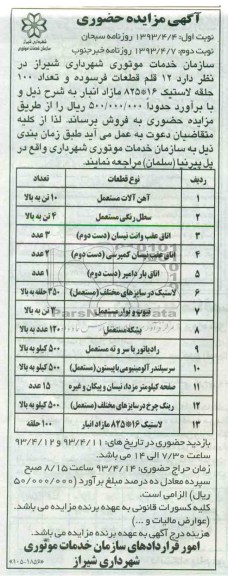 آگهی مزایده حضوری
نوبت اول: ۱۳۹۳/۴/۴ روزنامه سبحان
نوبت دوم: ۱۳۹۳/۴/۷ روزنامه خبرجنوب
سازمان خدمات موتوری شهرداری شیراز در
نظر دارد ۱۲ قلم قطعات فرسوده و تعداد ۱۰۰
حلقه لاستیک ۱۶*۸۲۵ مازاد انبار به شرح ذیل و
با برآورد حدوداً ۵۰۰/۰۰۰/۰۰۰ ریال را از طریق
مزایده حضوری به فروش برساند. لذا از کلیه
متقاضیان دعوت به عمل می آید طبق زمان بندی
ذیل به سازمان خدمات موتوری شهرداری واقع در
پل پیرنیا (سلمان) مراجعه نمایند.
ردیف نوع قطعات تعداد
۱ آهن آلات مستعمل ۱۰ تن به بالا
۲ سطل رنگی مستعمل ۴ تن به بالا
۳ اتاق عقب وانت نیسان (دست دوم) ۳ عدد
۴ اتاق عقب نیسان کمپرسی (دست دوم) ۲ عدد
۵ اتاق بار دامپر (دست دوم) ۱ عدد
۶ لاستیک در سایزهای مختلف (مستعمل) ۳۵۰ حلقه به بالا
۷ تیوپ و نوار مستعمل تن به بالا
۸ بشکه مستعمل ۱۲۰ عدد به بالا
۹ رادیاتور با سر و ته مستعمل ۵۰۰ کیلو به بالا
۱۰ سرسیلندر آلومینیومی با پیستون (مستعمل) ۵۰۰ کیلو به بالا
۱۱ صفحه کیلومتر مزدا، نیسان و پیکان و غیره ۱۵ عدد
۱۲ رینگ چرخ در سایزهای مختلف (مستعمل) ۵۰۰ کیلو به بالا
۱۳ لاستیک ۱۶*۸۲۵ مازاد انبار ۱۰۰ حلقه
بازدید حضوری در تاریخ های: ۹۳/۴/۱۱ و ۹۳/۴/۱۲
ساعت ۷/۳۰ الی ۱۴ می باشد.
زمان حراج حضوری: ۹۳/۴/۱۴ ساعت ۸/۱۵ صبح
سپرده معادل ده درصد مبلغ برآورد (۵۰/۰۰۰/۰۰۰
ریال) الزامی است.
کلیه کسورات قانونی به عهده برنده مزایده می باشد.
(عوارض مالیات و ...)
هزینه درج آگهی به عهده برنده مزایده می باشد.
امور قراردادهای سازمان خدمات موتوری
شهرداری شیراز